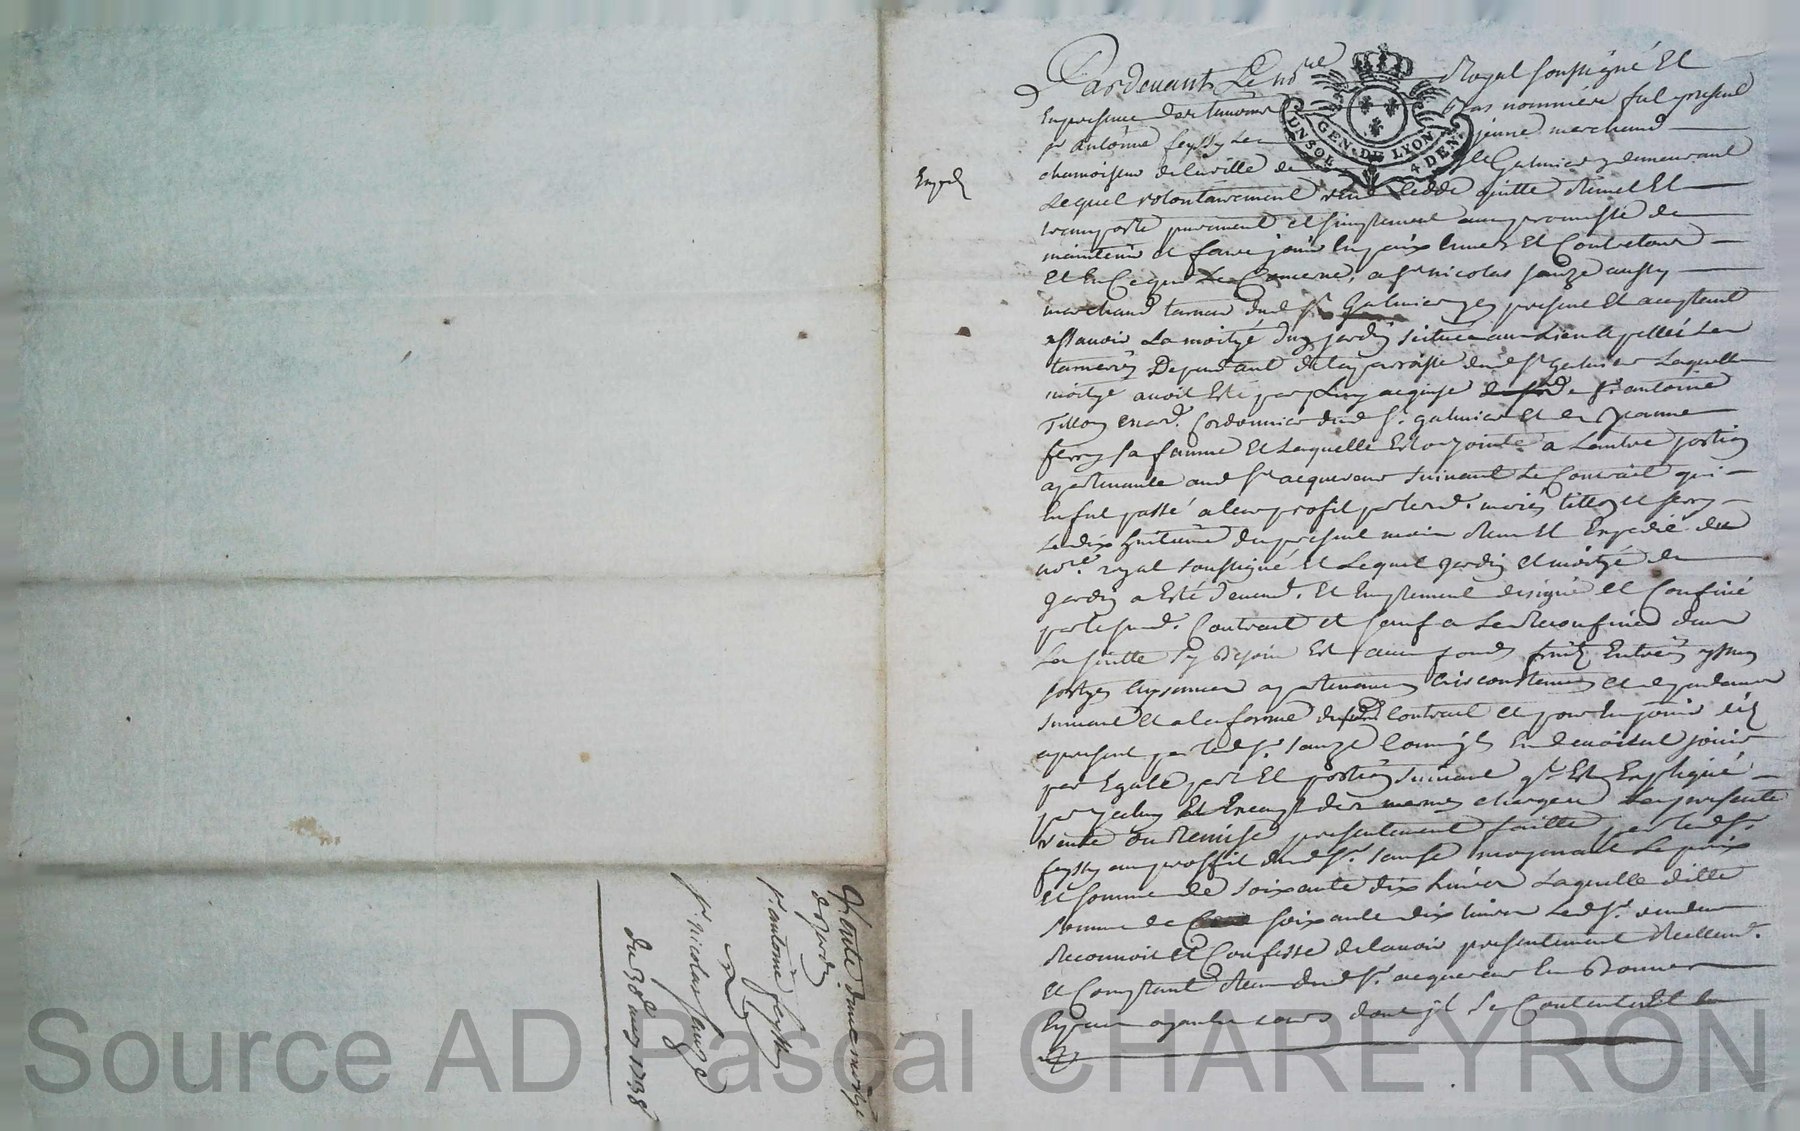 Pardevant Le no.re Royal soussigné Et
En presence des temoins bas nommées fut present
sr antoine feyssy Le jeune marchand
chamoiseur de la ville de st Galmier y demeurant
Lequel volontairement vend cedde quitte Remet Et
transporte purement et simplement avec promesse de
maintenir et faire jouir En paix Envers Et Contre tous
Et En Ce qui Le Concerne, a sr nicolas sauze aussy
marchand tanneur dud. st Galmier present Et acceptant
assavoir La moityé dun jardin scitué au Lieu appellée Les
tanneries Dependant de la parroisse dud. st Galmier Laquelle
moityé avoit Eté par Luy acquise de sr antoine
Tillon md. Cordonnier dud. st. galmier Et de Jeanne
ferry sa famme Et Laquelle Est conjointe a Lautre portion
apartenante aud. sr acquereur suivant Le Contrait qui
En fut passé a leur profit par lesd. mariés tillon et ferry
Le dix huitieme du present mois Receu Et Expedié du
no.re royal soussigné Et Lequel jardin et moityé de
jardin a Esté Et amplement designé Et Confiné
par le sud. Contrait et sauf a Le Reconfiner dans
La suitte sy Besoin Est avec fonds fruits Entrées yssues
apartenances circonstances et dependances
suivant Et a la forme dud. Contrait et pour En jouir des
apresent par led. sr. sauze Comme Ils En devoient jouir
par Egale part Et portion suivant qu'il Est Expliqué
par yceluy Et aux mêmes charges La presente
vente ou Remise presentement faitte par led. sr.
feyssy au proffit dud. sr. sauze moyenant Le prix
et somme de soixante dix Livres Laquelle ditte
somme de soixante dix Livres Led. sr. vendeur
Reconnoit Et Confesse de lavoir presentement Reellemt.
et Comptant Receu dud. sr. acquereur En Bonnes
Especes ayant cours dont jl se Contente Et En
Exped
Vente d'une moityé
de jardin
sr. antoine feyssy
a
sr. nicolas sauze
du 30e may 1738
GEN. DE LYON
UN SOL 4 DEN.
Source AD Pascal CHAREYRON